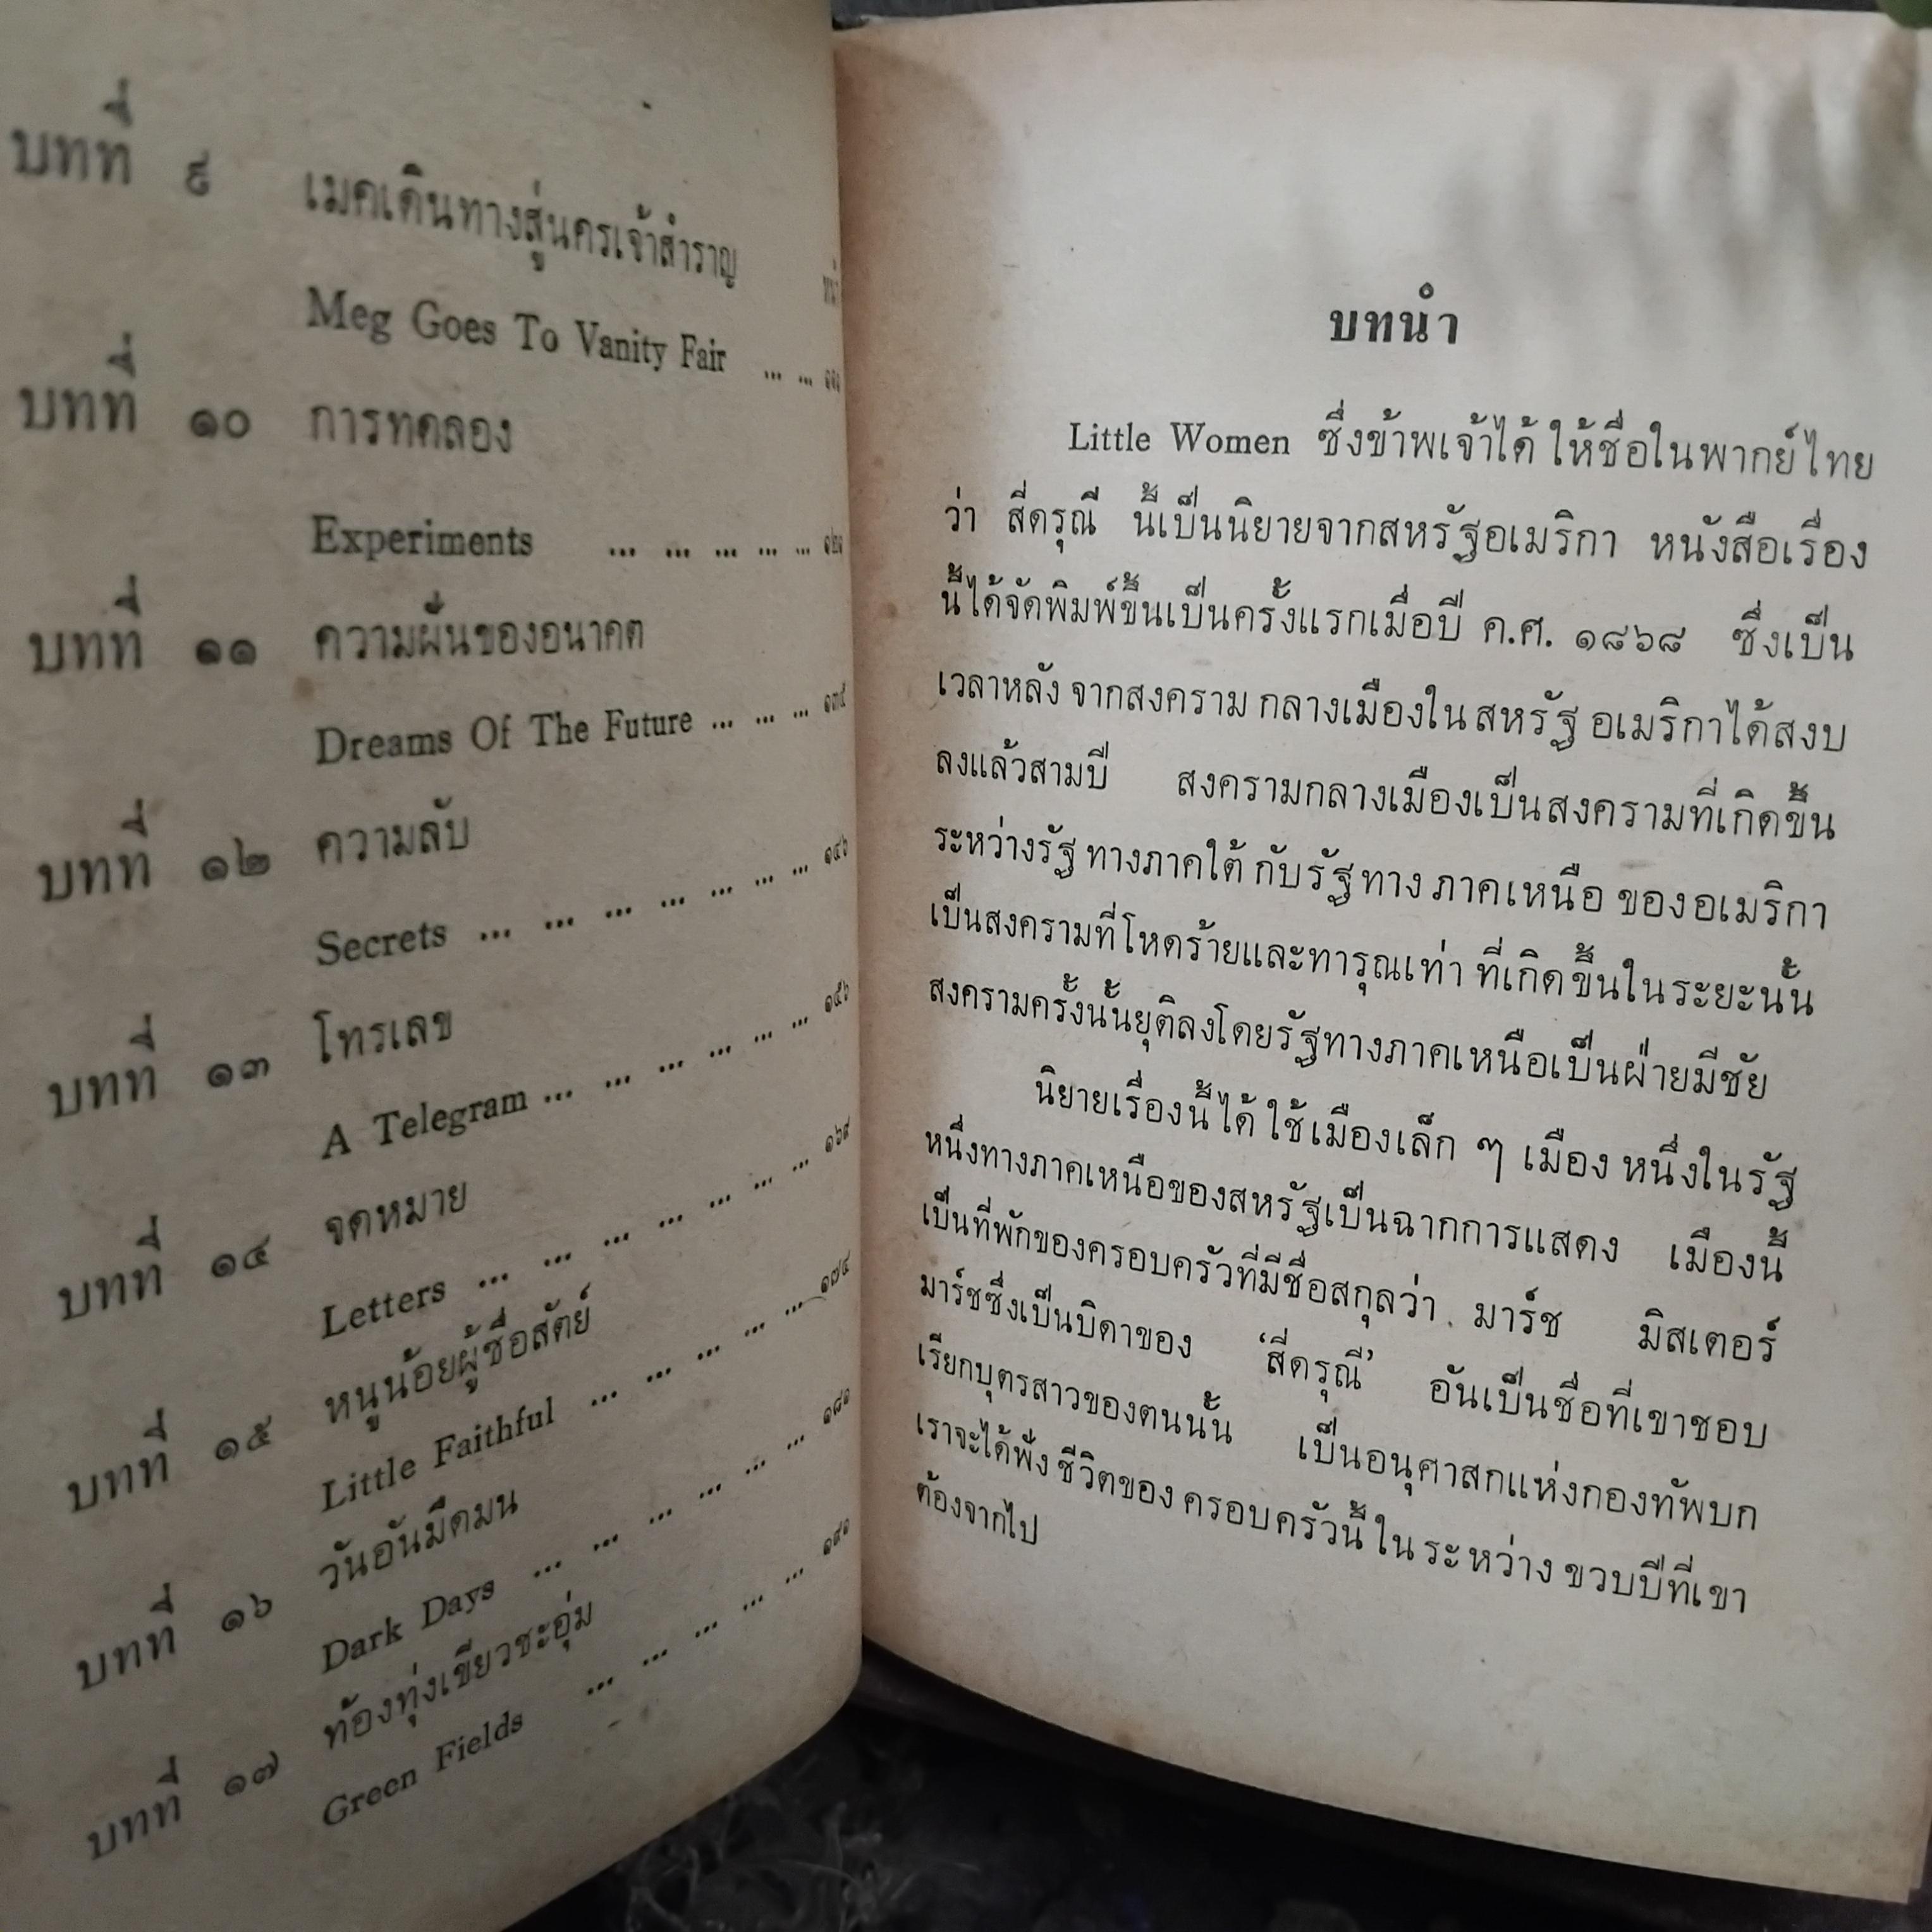 บทที่ ๙ เมคเดินทางสู่นครเจ้าสำราญ
หน้า
Meg Goes To Vanity Fair ... ...
บทที่ ๑๐ การทดลอง
Experiments ... ... ... ... ...
บทที่ ๑๑ ความฝันของอนาคต
Dreams Of The Future ... ... ... ๑๓๕
บทที่ ๑๒ ความลับ
Secrets ... ... ... ... ... ... ... ๑๔๖
บทที่ ๑๓ โทรเลข
A Telegram ... ... ... ... ... ... ๑๕๖
บทที่ ๑๔ จดหมาย
Letters ... ... ... ... ... ... ... ๑๖๙
บทที่ ๑๕ หนูน้อยผู้ซื่อสัตย์
Little Faithful ... ... ... ... ... ๑๗๔
บทที่ ๑๖ วันอันมืดมน
Dark Days ... ... ... ... ... ... ๑๘๑
บทที่ ๑๗ ท้องทุ่งเขียวชะอุ่ม
Green Fields ... ... ... ... ... ๑๙๑
บทนำ
Little Women ซึ่งข้าพเจ้าได้ ให้ชื่อในพากย์ไทย
ว่า สี่ดรุณี นี้เป็นนิยายจากสหรัฐอเมริกา หนังสือเรื่อง
นี้ได้จัดพิมพ์ขึ้นเป็นครั้งแรกเมื่อปี ค.ศ. ๑๘๖๘ ซึ่งเป็น
เวลาหลัง จากสงคราม กลางเมืองใน สหรัฐ อเมริกาได้สงบ
ลงแล้วสามปี สงครามกลางเมืองเป็นสงครามที่เกิดขึ้น
ระหว่างรัฐ ทางภาคใต้ กับรัฐทาง ภาคเหนือ ของอเมริกา
เป็นสงครามที่โหดร้ายและทารุณเท่า ที่เกิดขึ้นในระยะนั้น
สงครามครั้งนั้นยุติลงโดยรัฐทางภาคเหนือเป็นฝ่ายมีชัย
นิยายเรื่องนี้ได้ ใช้เมืองเล็ก ๆ เมือง หนึ่งในรัฐ
หนึ่งทางภาคเหนือของสหรัฐเป็นฉากการแสดง เมืองนี้
เป็นที่พักของครอบครัวที่มีชื่อสกุลว่า มาร์ช มิสเตอร์
มาร์ชซึ่งเป็นบิดาของ ‘สี่ดรุณี’ อันเป็นชื่อที่เขาชอบ
เรียกบุตรสาวของตนนั้น เป็นอนุศาสกแห่งกองทัพบก
เราจะได้ฟัง ชีวิตของ ครอบครัวนี้ ใน ระหว่าง ขวบปีที่เขา
ต้องจากไป